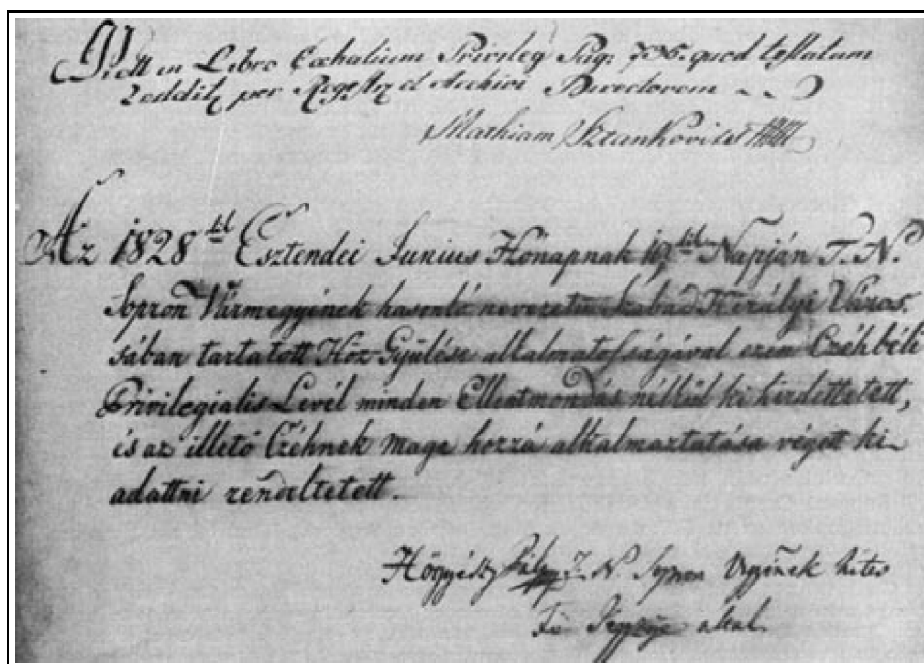 in Libro Cæhalium Privileg Pag: 706. quod testatum
reddit per Regestr et Archivi Directorem
Mathiam Sztankovits
Az 1828dik Esztendei Junius Hónapnak Napján T. N.
Sopron Vármegyének hasonló nevezetű szabad Királyi Váras-
sában tartatott Köz-Gyűlése alkalmatosságával ezen Czéhbéli
Privilegialis Levél minden Ellentmondás nélkül ki hirdettetett,
és az illető Czéhnek maga hozzá alkalmaztatása végett ki-
adattni rendeltetett.
Pál T. N. Sopron hites
Fő Jegyzője által